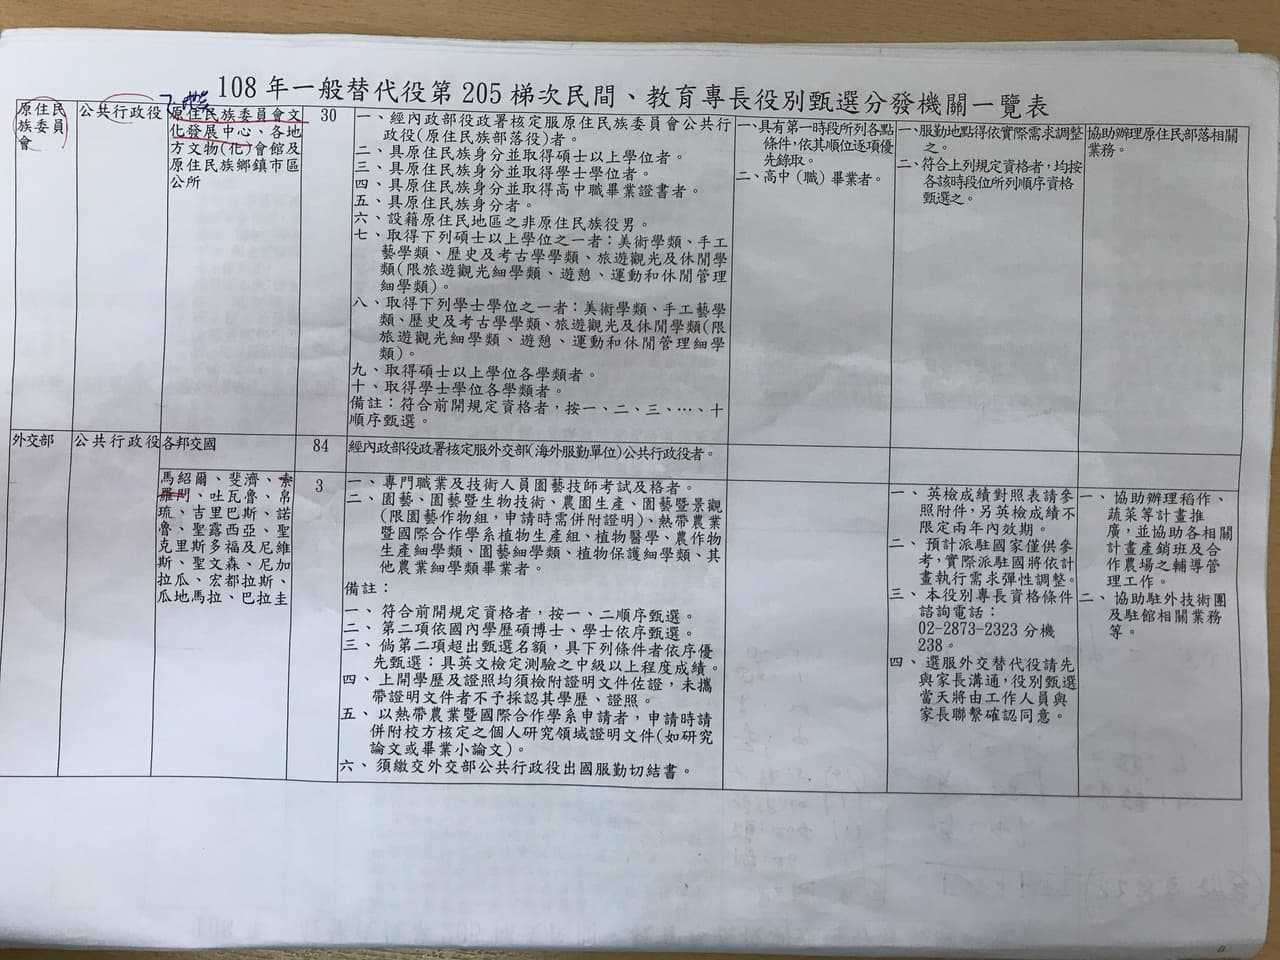 108 年一般替代役第 205 梯次民間、教育專長役別甄選分發機關一覽表
原住民
族委員
會
公共行政役
原住民族委員會文
化發展中心、各地
方文物(化)會館及
原住民族鄉鎮市區
公所
30
一、經內政部役政署核定服原住民族委員會公共行
政役(原住民族部落役)者。
二、具原住民族身分並取得碩士以上學位者。
三、具原住民族身分並取得學士學位者。
四、具原住民族身分並取得高中職畢業證書者。
五、具原住民族身分者。
六、設籍原住民地區之非原住民族役男。
七、取得下列碩士以上學位之一者：美術學類、手工
藝學類、歷史及考古學學類、旅遊觀光及休閒學
類(限旅遊觀光細學類、遊憩、運動和休閒管理
細學類)。
八、取得下列學士學位之一者：美術學類、手工藝學
類、歷史及考古學學類、旅遊觀光及休閒學類(限
旅遊觀光細學類、遊憩、運動和休閒管理細學
類)。
九、取得碩士以上學位各學類者。
十、取得學士學位各學類者。
備註：符合前開規定資格者，按一、二、三、…、十
順序甄選。
一、具有第一時段所列各點
條件，依其順位逐項優
先錄取。
二、高中（職）畢業者。
一、服勤地點得依實際需求調整
之。
二、符合上列規定資格者，均按
各該時段位所列順序資格
甄選之。
協助辦理原住民部落相關
業務。
外交部
公共行政役
各邦交國
84
經內政部役政署核定服外交部(海外服勤單位)公共行政役者。
馬紹爾、斐濟、索
羅門、吐瓦魯、帛
琉、吉里巴斯、諾
魯、聖露西亞、聖
克里斯多福及尼維
斯、聖文森、尼加
拉瓜、宏都拉斯、
瓜地馬拉、巴拉圭
3
一、專門職業及技術人員園藝技師考試及格者。
二、園藝、園藝暨生物技術、農園生產、園藝暨景觀
(限園藝作物組，申請時需併附證明)、熱帶農業
暨國際合作學系植物生產組、植物醫學、農作物
生產細學類、園藝細學類、植物保護細學類、其
他農業細學類畢業者。
備註：
一、符合前開規定資格者，按一、二順序甄選。
二、第二項依國內學歷碩博士、學士依序甄選。
三、倘第二項超出甄選名額，具下列條件者依序優
先甄選：具英文檢定測驗之中級以上程度成績。
四、上開學歷及證照均須檢附證明文件佐證，未攜
帶證明文件者不予採認其學歷、證照。
五、以熱帶農業暨國際合作學系申請者，申請時請
併附校方核定之個人研究領域證明文件(如研究
論文或畢業小論文)。
六、須繳交外交部公共行政役出國服勤切結書。
一、英檢成績對照表請參
照附件，另英檢成績不
限定兩年內效期。
二、預計派駐國家僅供參
考，實際派駐國將依計
畫執行需求彈性調整。
三、本役別專長資格條件
諮詢電話：
02-2873-2323 分機
238。
四、選服外交替代役請先
與家長溝通，役別甄選
當天將由工作人員與
家長聯繫確認同意。
一、協助辦理稻作、
蔬菜等計畫推
廣，並協助各相關
計畫產銷班及合
作農場之輔導管
理工作。
二、協助駐外技術團
及駐館相關業務
等。